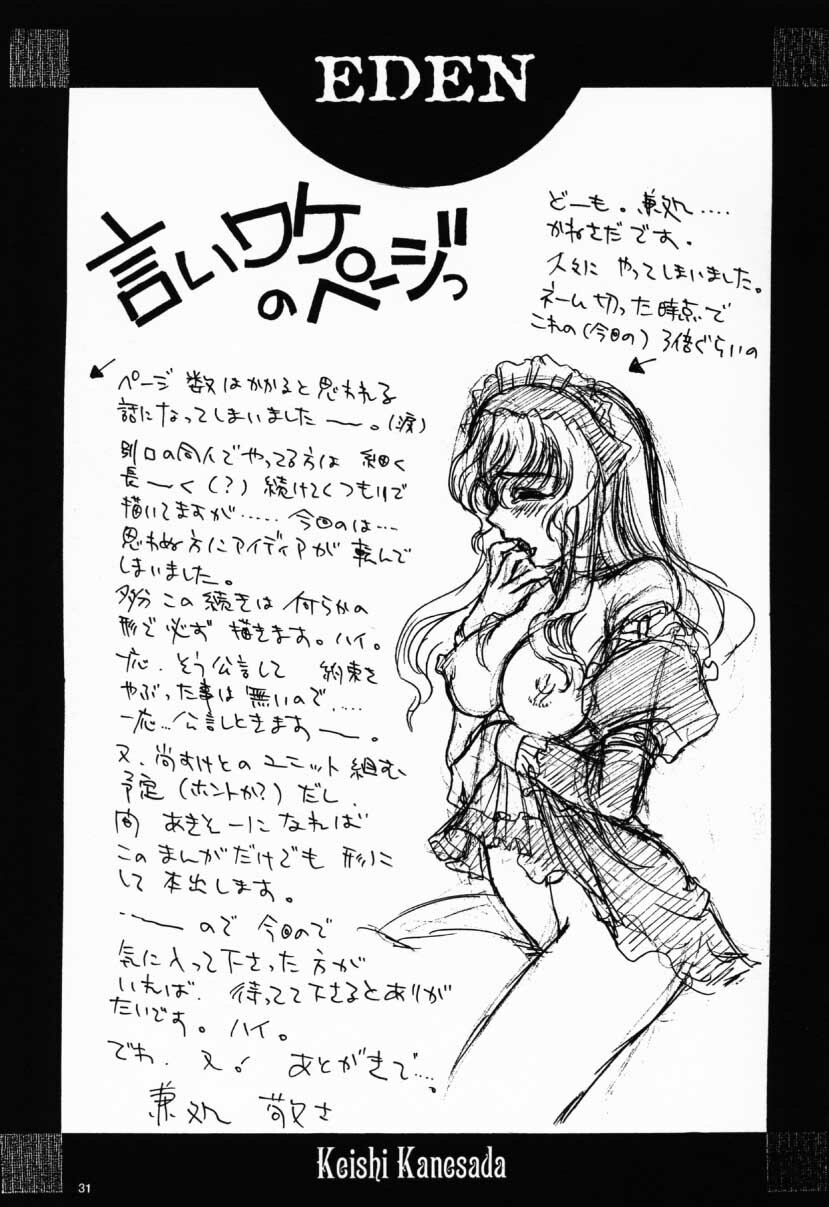 EDEN
言いワケ
のページっ
どーも。兼処....
かねさだです。
人々に やってしまいました。
ネーム切った時点で
これの(今回の) 3倍ぐらいの
ページ数はかかると思われる
話になってしまいました――。(涙)
別口の同人でやってる方は 細く
長――く(?) 続けてくつもりで
描いてますが...... 今回のは....
思わぬ方にアイディアが 転んで
しまいました。
多分 この続きは 何らかの
形で 必ず 描きます。ハイ。
一応. そう公言して 約束を
やぶった事は 無いので.....
一応...公言しときます――。
又、尚すけとの ユニット組む
予定 (ホントか?) だし、
間 あきそーに なれば
このまんがだけでも 形に
して 本出します。
――ので 今回ので
気に入って下さった方が
いれば、待ってて下さるとありが
たいです。ハイ。
でわ、又! あとがきで....。
兼処 敬士
Keishi Kanesada
31